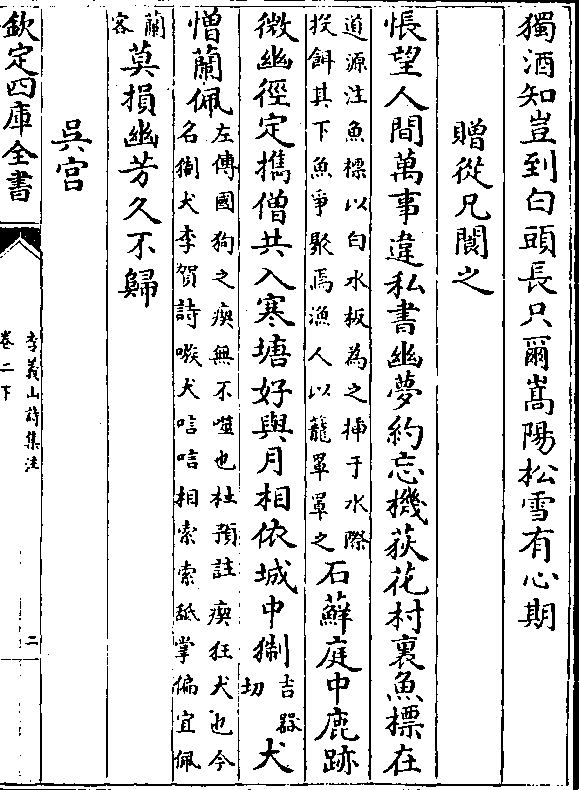 獨酒知豈到白頭長只爾嵩陽松雪有心期
贈從兄閬之
悵望人間萬事違私書幽夢約忘機荻花村裏魚標在
道源注魚標以白水板為之揷于水際
投餌其下魚爭聚焉漁人以籠罩罩之
石蘚庭中鹿跡
微幽徑定擕僧共入寒塘好與月相依城中猘
吉器
切
犬
憎蘭佩
左傳國狗之瘈無不噬也杜預註瘈狂犬也今
名猘犬李賀詩嗾犬唁唁相索索舐掌偏宜佩
蘭
客
莫損幽芳久不歸
吳宫
欽定四庫全書
李義山詩集注
卷二下
二